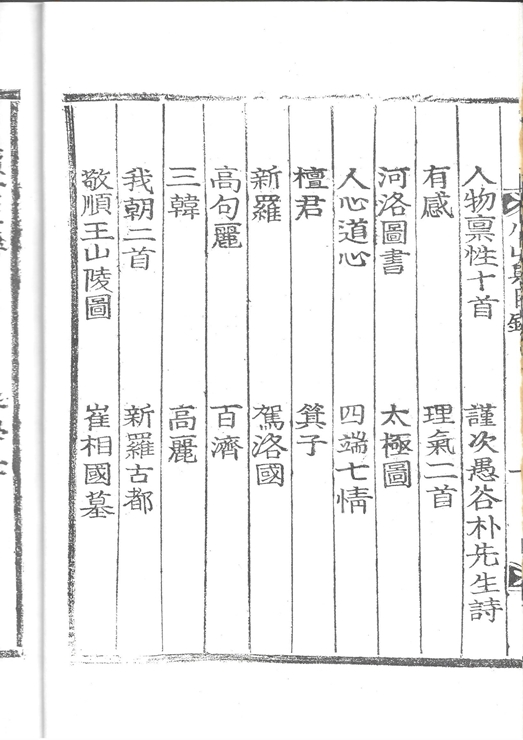 人物禀性十首 謹次愚谷朴先生詩
有感 理氣二首
河洛圖書 太極圖
人心道心 四端七情
檀君 箕子
新羅 駕洛國
高句麗 百濟
三韓 高麗
我朝二首 新羅古都
敬順王山陵圖 崔相國墓